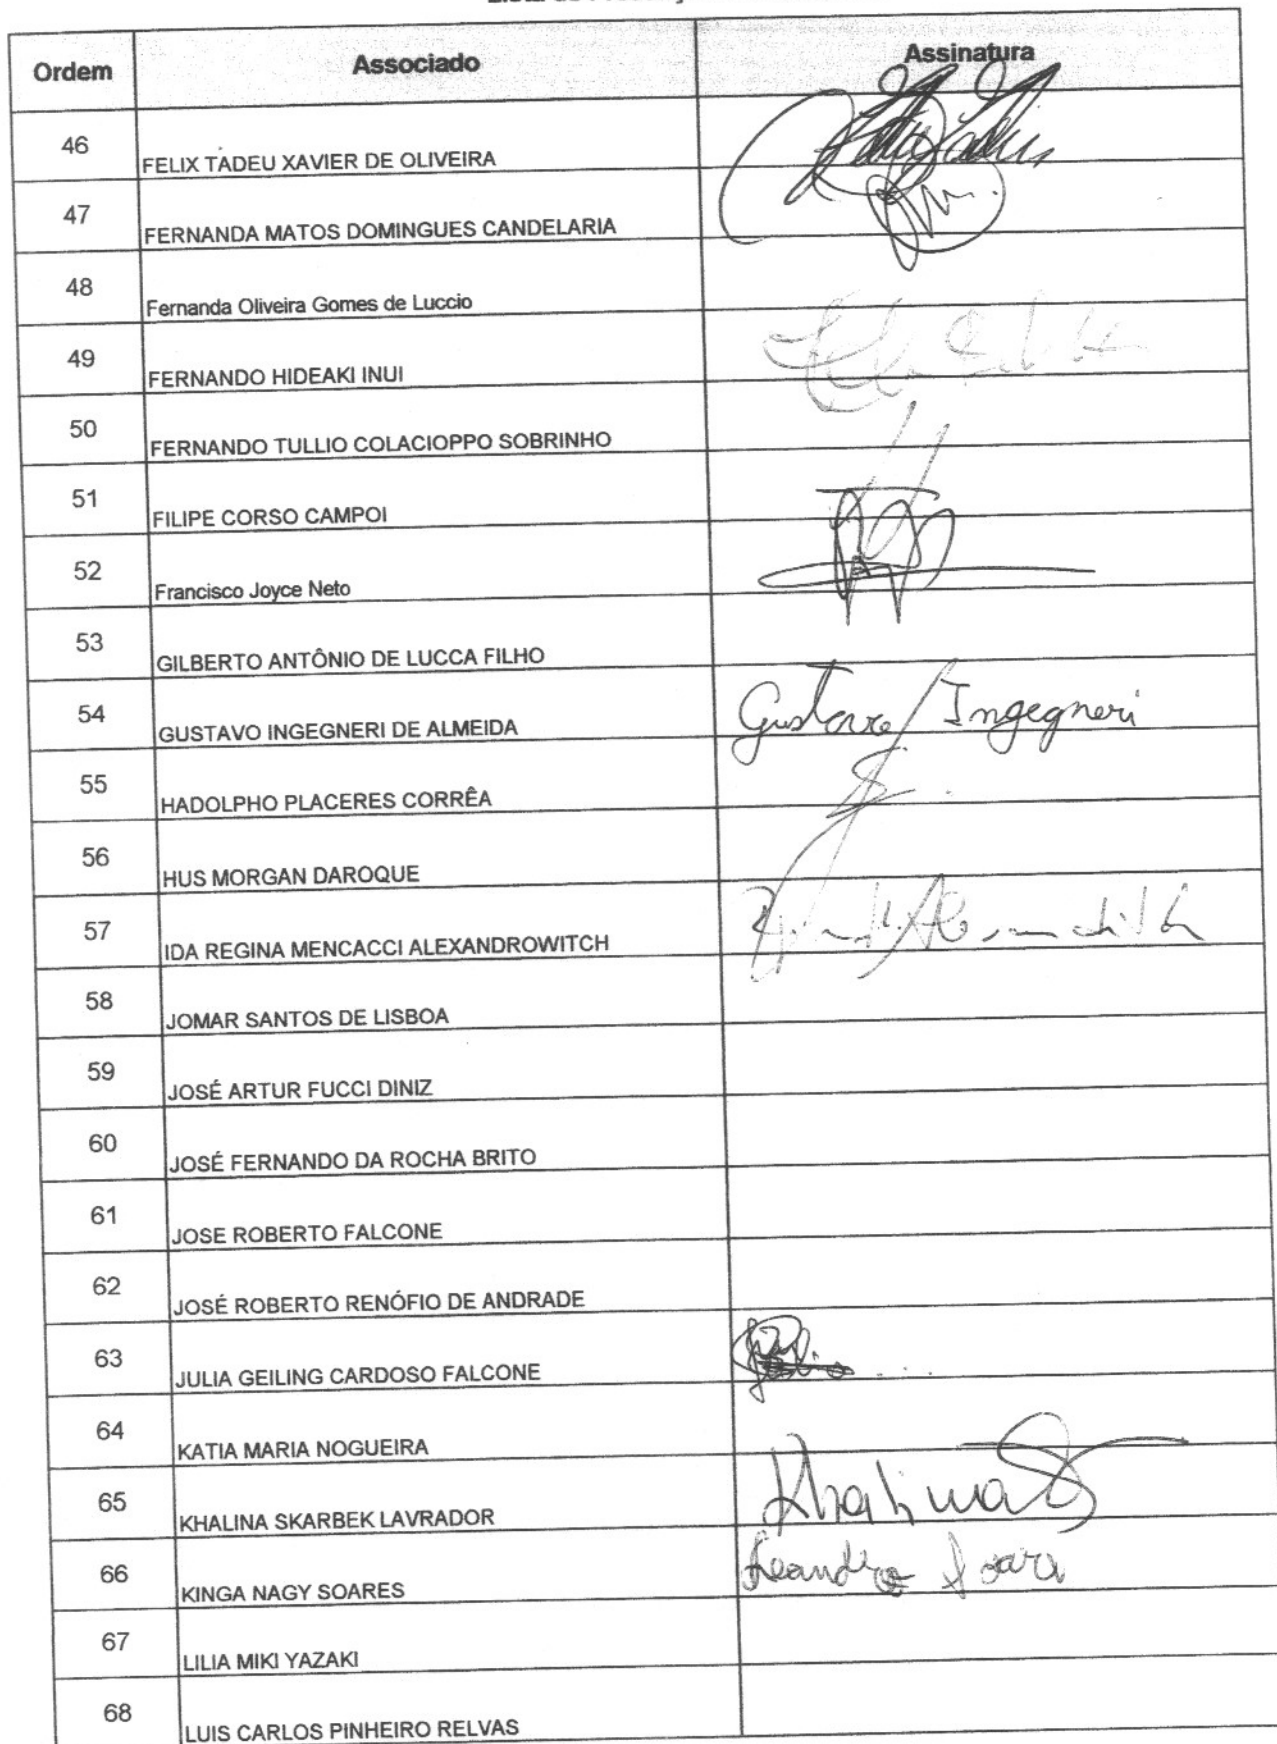 Ordem Associado Assinatura
46 FELIX TADEU XAVIER DE OLIVEIRA
47 FERNANDA MATOS DOMINGUES CANDELARIA
48 Fernanda Oliveira Gomes de Luccio
49 FERNANDO HIDEAKI INUI
50 FERNANDO TULLIO COLACIOPPO SOBRINHO
51 FILIPE CORSO CAMPOI
52 Francisco Joyce Neto
53 GILBERTO ANTÔNIO DE LUCCA FILHO
54 GUSTAVO INGEGNERI DE ALMEIDA Gustavo Ingegneri
55 HADOLPHO PLACERES CORRÊA
56 HUS MORGAN DAROQUE
57 IDA REGINA MENCACCI ALEXANDROWITCH
58 JOMAR SANTOS DE LISBOA
59 JOSÉ ARTUR FUCCI DINIZ
60 JOSÉ FERNANDO DA ROCHA BRITO
61 JOSE ROBERTO FALCONE
62 JOSÉ ROBERTO RENÓFIO DE ANDRADE
63 JULIA GEILING CARDOSO FALCONE
64 KATIA MARIA NOGUEIRA
65 KHALINA SKARBEK LAVRADOR Khalina
66 KINGA NAGY SOARES Leandro
67 LILIA MIKI YAZAKI
68 LUIS CARLOS PINHEIRO RELVAS